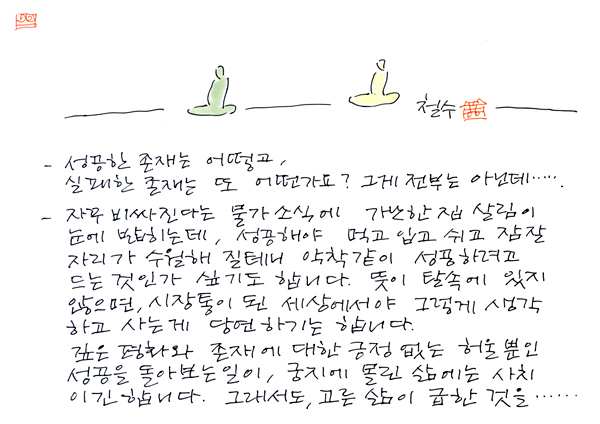 철수
- 성공한 존재는 어떻고,
실패한 존재는 또 어떤가요? 그게 전부는 아닌데‥‥‥.
- 자꾸 비싸진다는 물가소식에 가난한 집 살림이
눈에 밟히는데, 성공해야 먹고 입고 쉬고 잠잘
자리가 수월해 질테니 악착같이 성공하려고
드는 것인가 싶기도 합니다. 뜻이 탈속에 있지
않으면, 시장통이 된 세상에서야 그렇게 생각
하고 사는게 당연하기는 합니다.
깊은 평화와 존재에 대한 긍정 없는 허울뿐인
성공을 돌아보는 일이, 궁지에 몰린 삶에는 사치
이긴 합니다. 그래서도, 고른 삶이 급한 것을‥‥‥